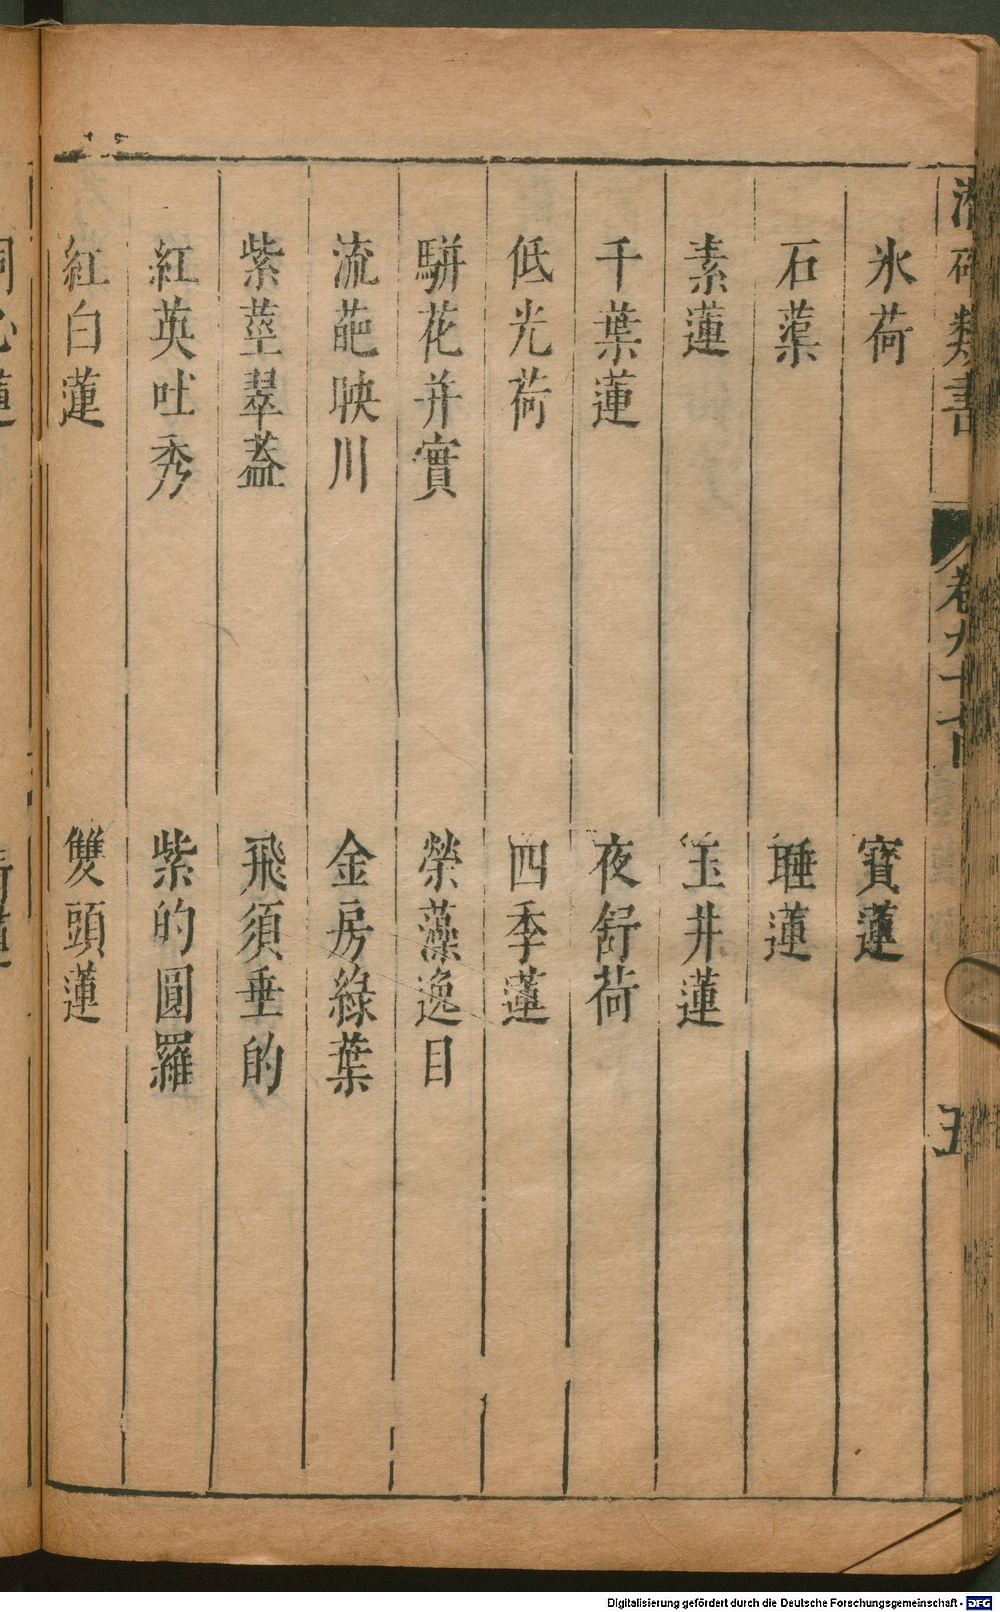 潛確類書 卷九十七 五
氷荷 寳蓮
石蕖 睡蓮
素蓮 玉井蓮
千葉蓮 夜舒荷
低光荷 四季蓮
駢花并實 榮藻逸目
流葩映川 金房綠葉
紫莖翠葢 飛須垂的
紅英吐秀 紫的圓羅
紅白蓮 雙頭蓮
Digitalisierung gefördert durch die Deutsche Forschungsgemeinschaft - DFG